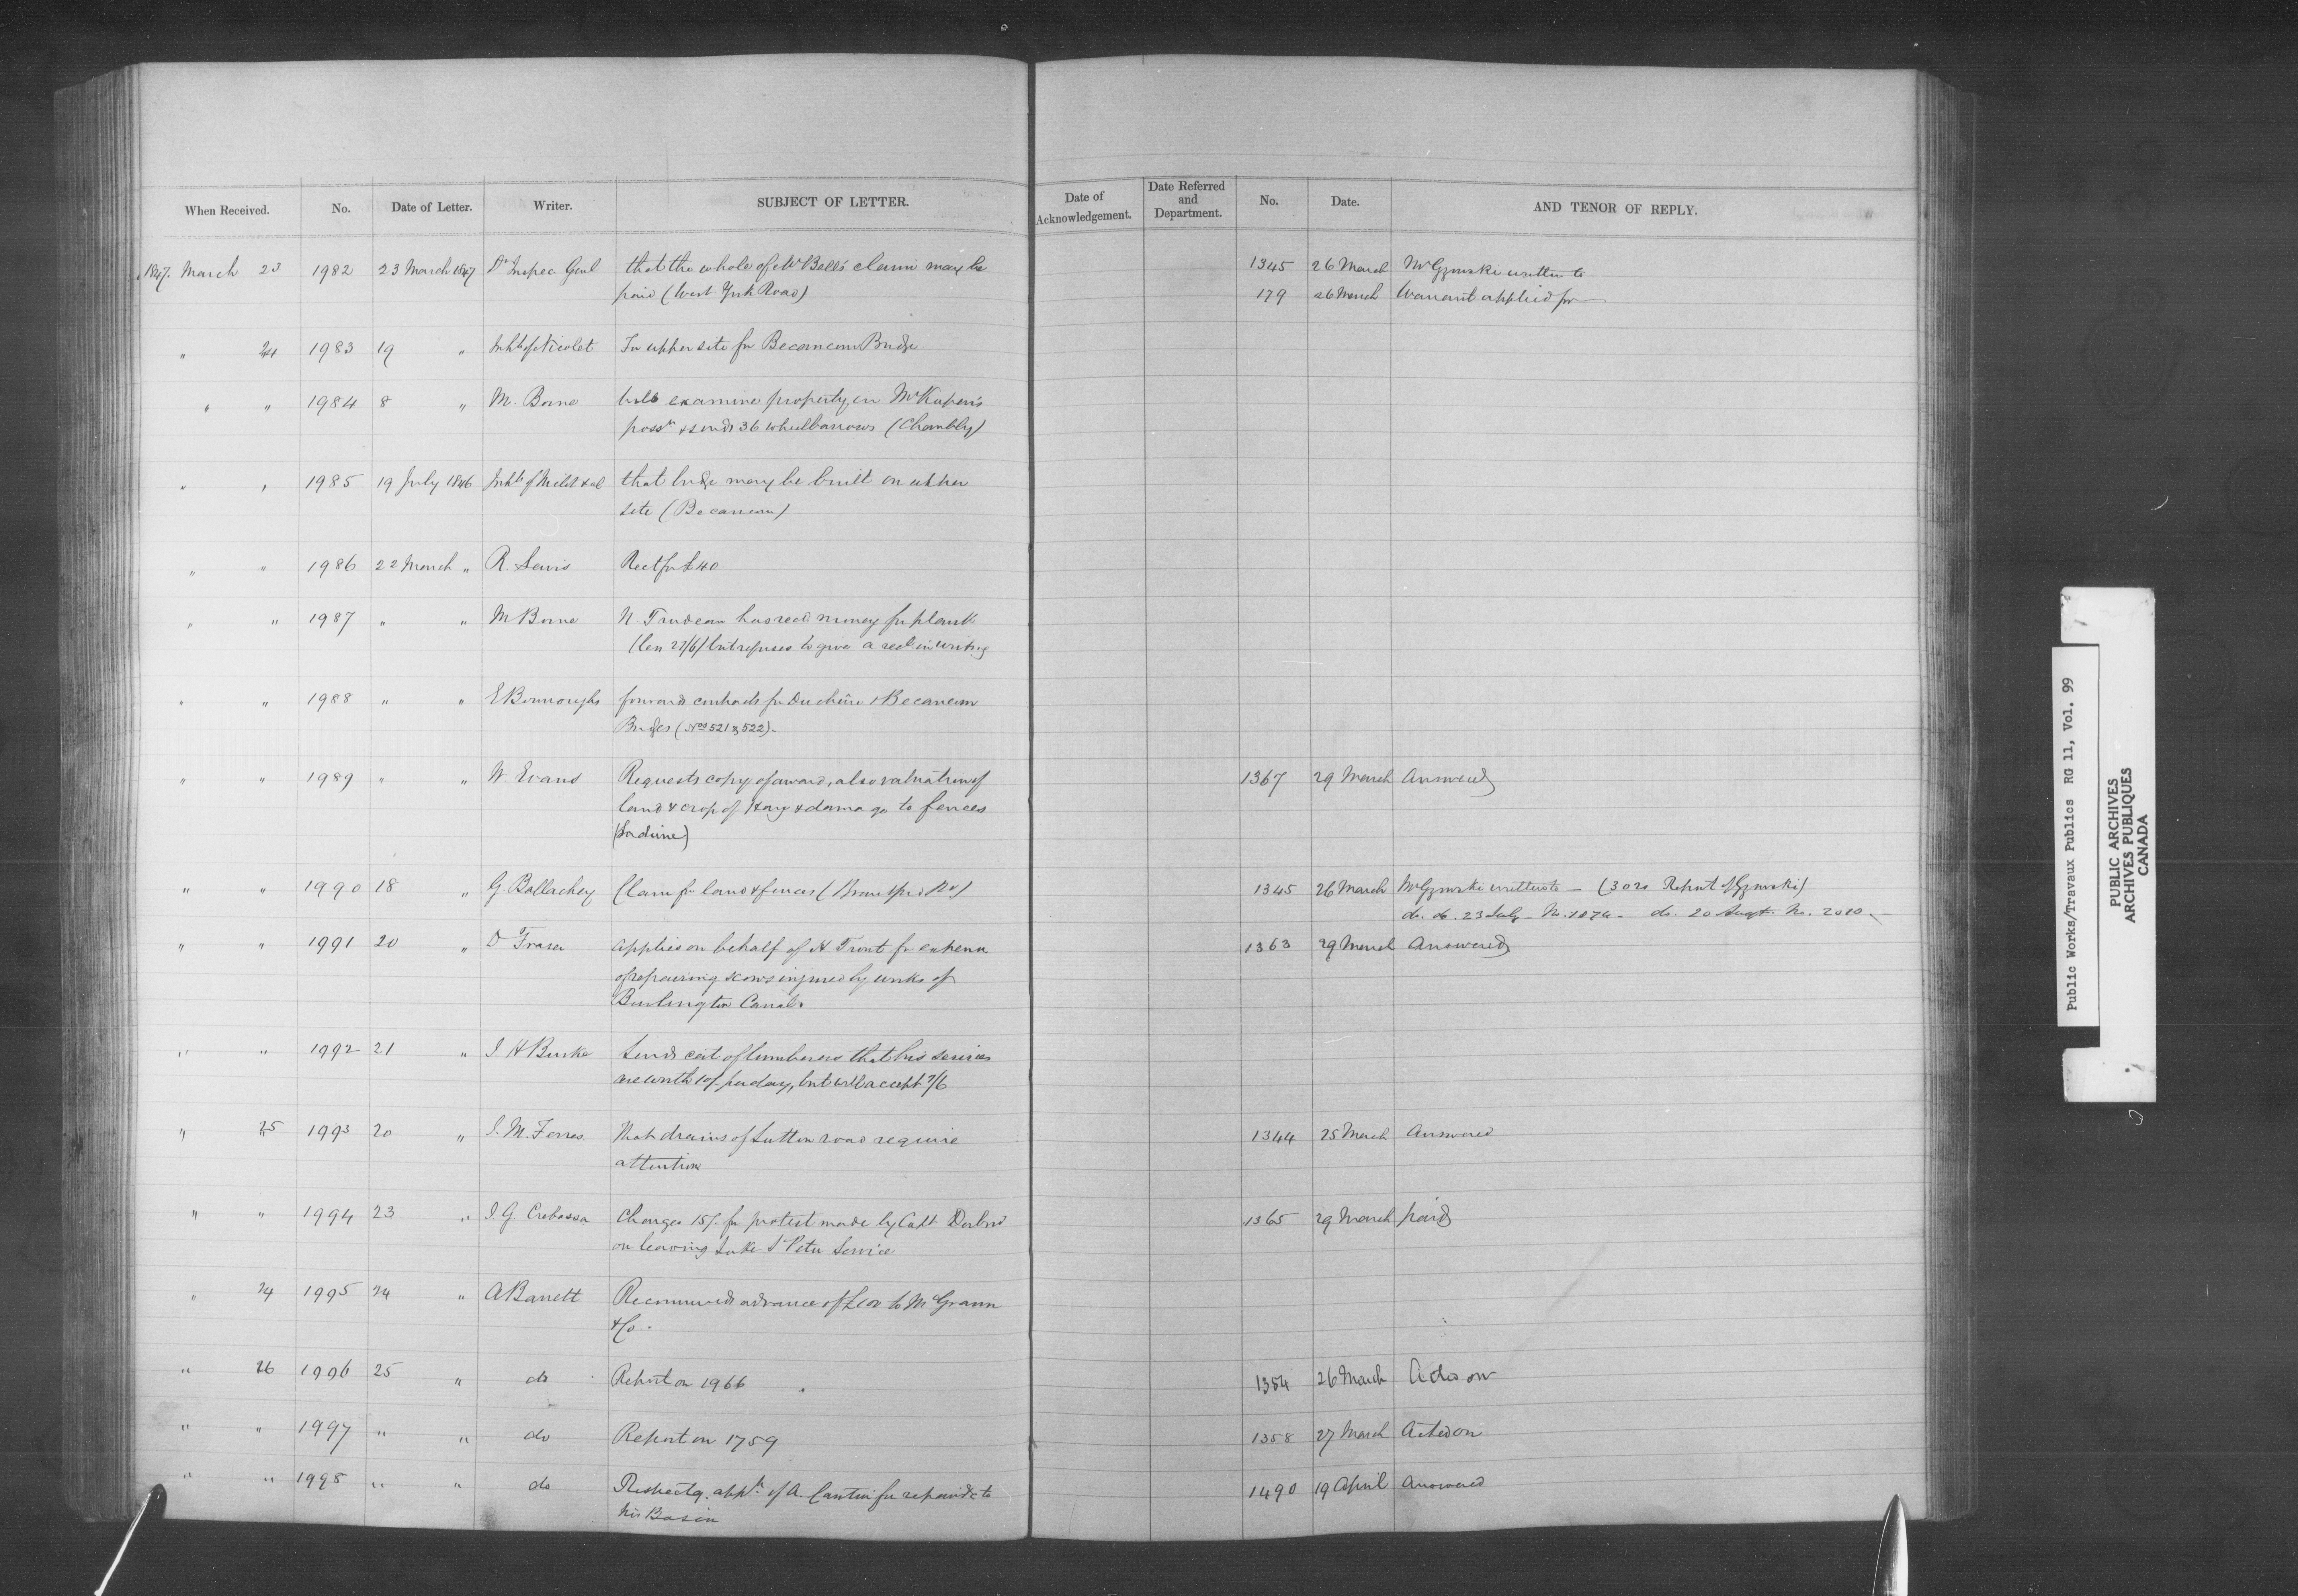 When Received. No. Date of Letter. Writer. SUBJECT OF LETTER. Date of Acknowledgement. Date Referred and Department. No. Date. AND TENOR OF REPLY.
1847. March 23 1982 23 March 1847 Dy Inspec Genl that the whole of Mr Bell's claim may be 1345 26 March Mr Gzowski written to
paid (West York Road) 179 26 March Warrant applied for
" 24 1983 19 " Inhts of Nicolet For upper site for Becancour Bridge
" " 1984 8 " M. Borne Will examine property in
possn & sends 36 wheelbarrows (Chambly)
" " 1985 19 July 1846 Inhts of & al that bridge may be built on upper
site (Becancour)
" " 1986 22 March " R. Lewis Rect for £40
" " 1987 " " M Borne N. Trudeau has recd money for plank
27/6) but refuses to give a rect in writing
" " 1988 " " E Burroughs forwards contracts for Duchêne & Becancour
Bridges (Nos 521 & 522).
" " 1989 " " W. Evans Requests copy of award, also valuation of 1367 29 March Answered
land & crop of Hay & damage to fences
(Lachine)
" " 1990 18 " G. Ballachey Claim for land & fences (Brantford Rd) 1345 26 March Mr Gzowski written to — (3020 Report of Gzowski)
do. do. 23 July - No. 1874 - do. 20 Augt. No. 2010 -
" " 1991 20 " D Fraser applies on behalf of H Trout for expense 1363 29 March Answered
of repairing scows injured by works of
Burlington Canal.
" " 1992 21 " J H Burke Sends cert of lumberers that his services
are worth 10/- per day, but will accept 7/6
" 25 1993 20 " J. M. Ferres. That drains of Sutton road require 1344 25 March Answered
attention
" " 1994 23 " J G Crebassa Charges 15/. for protest made by Capt 1365 29 March paid
on leaving Lake St Peter Service
" 24 1995 24 " A Barrett Recommends advance of to McGrann
& Co.
" 26 1996 25 " do Report on 1966 1354 26 March Acted on
" " 1997 " " do Report on 1759 1358 27 March Acted on
" " 1998 " " do Respectg. appn. of A. Cantin for repairs to 1490 19 April Answered
his Basin
Public Works/Travaux Publics RG 11, Vol. 99
PUBLIC ARCHIVES
ARCHIVES PUBLIQUES
CANADA